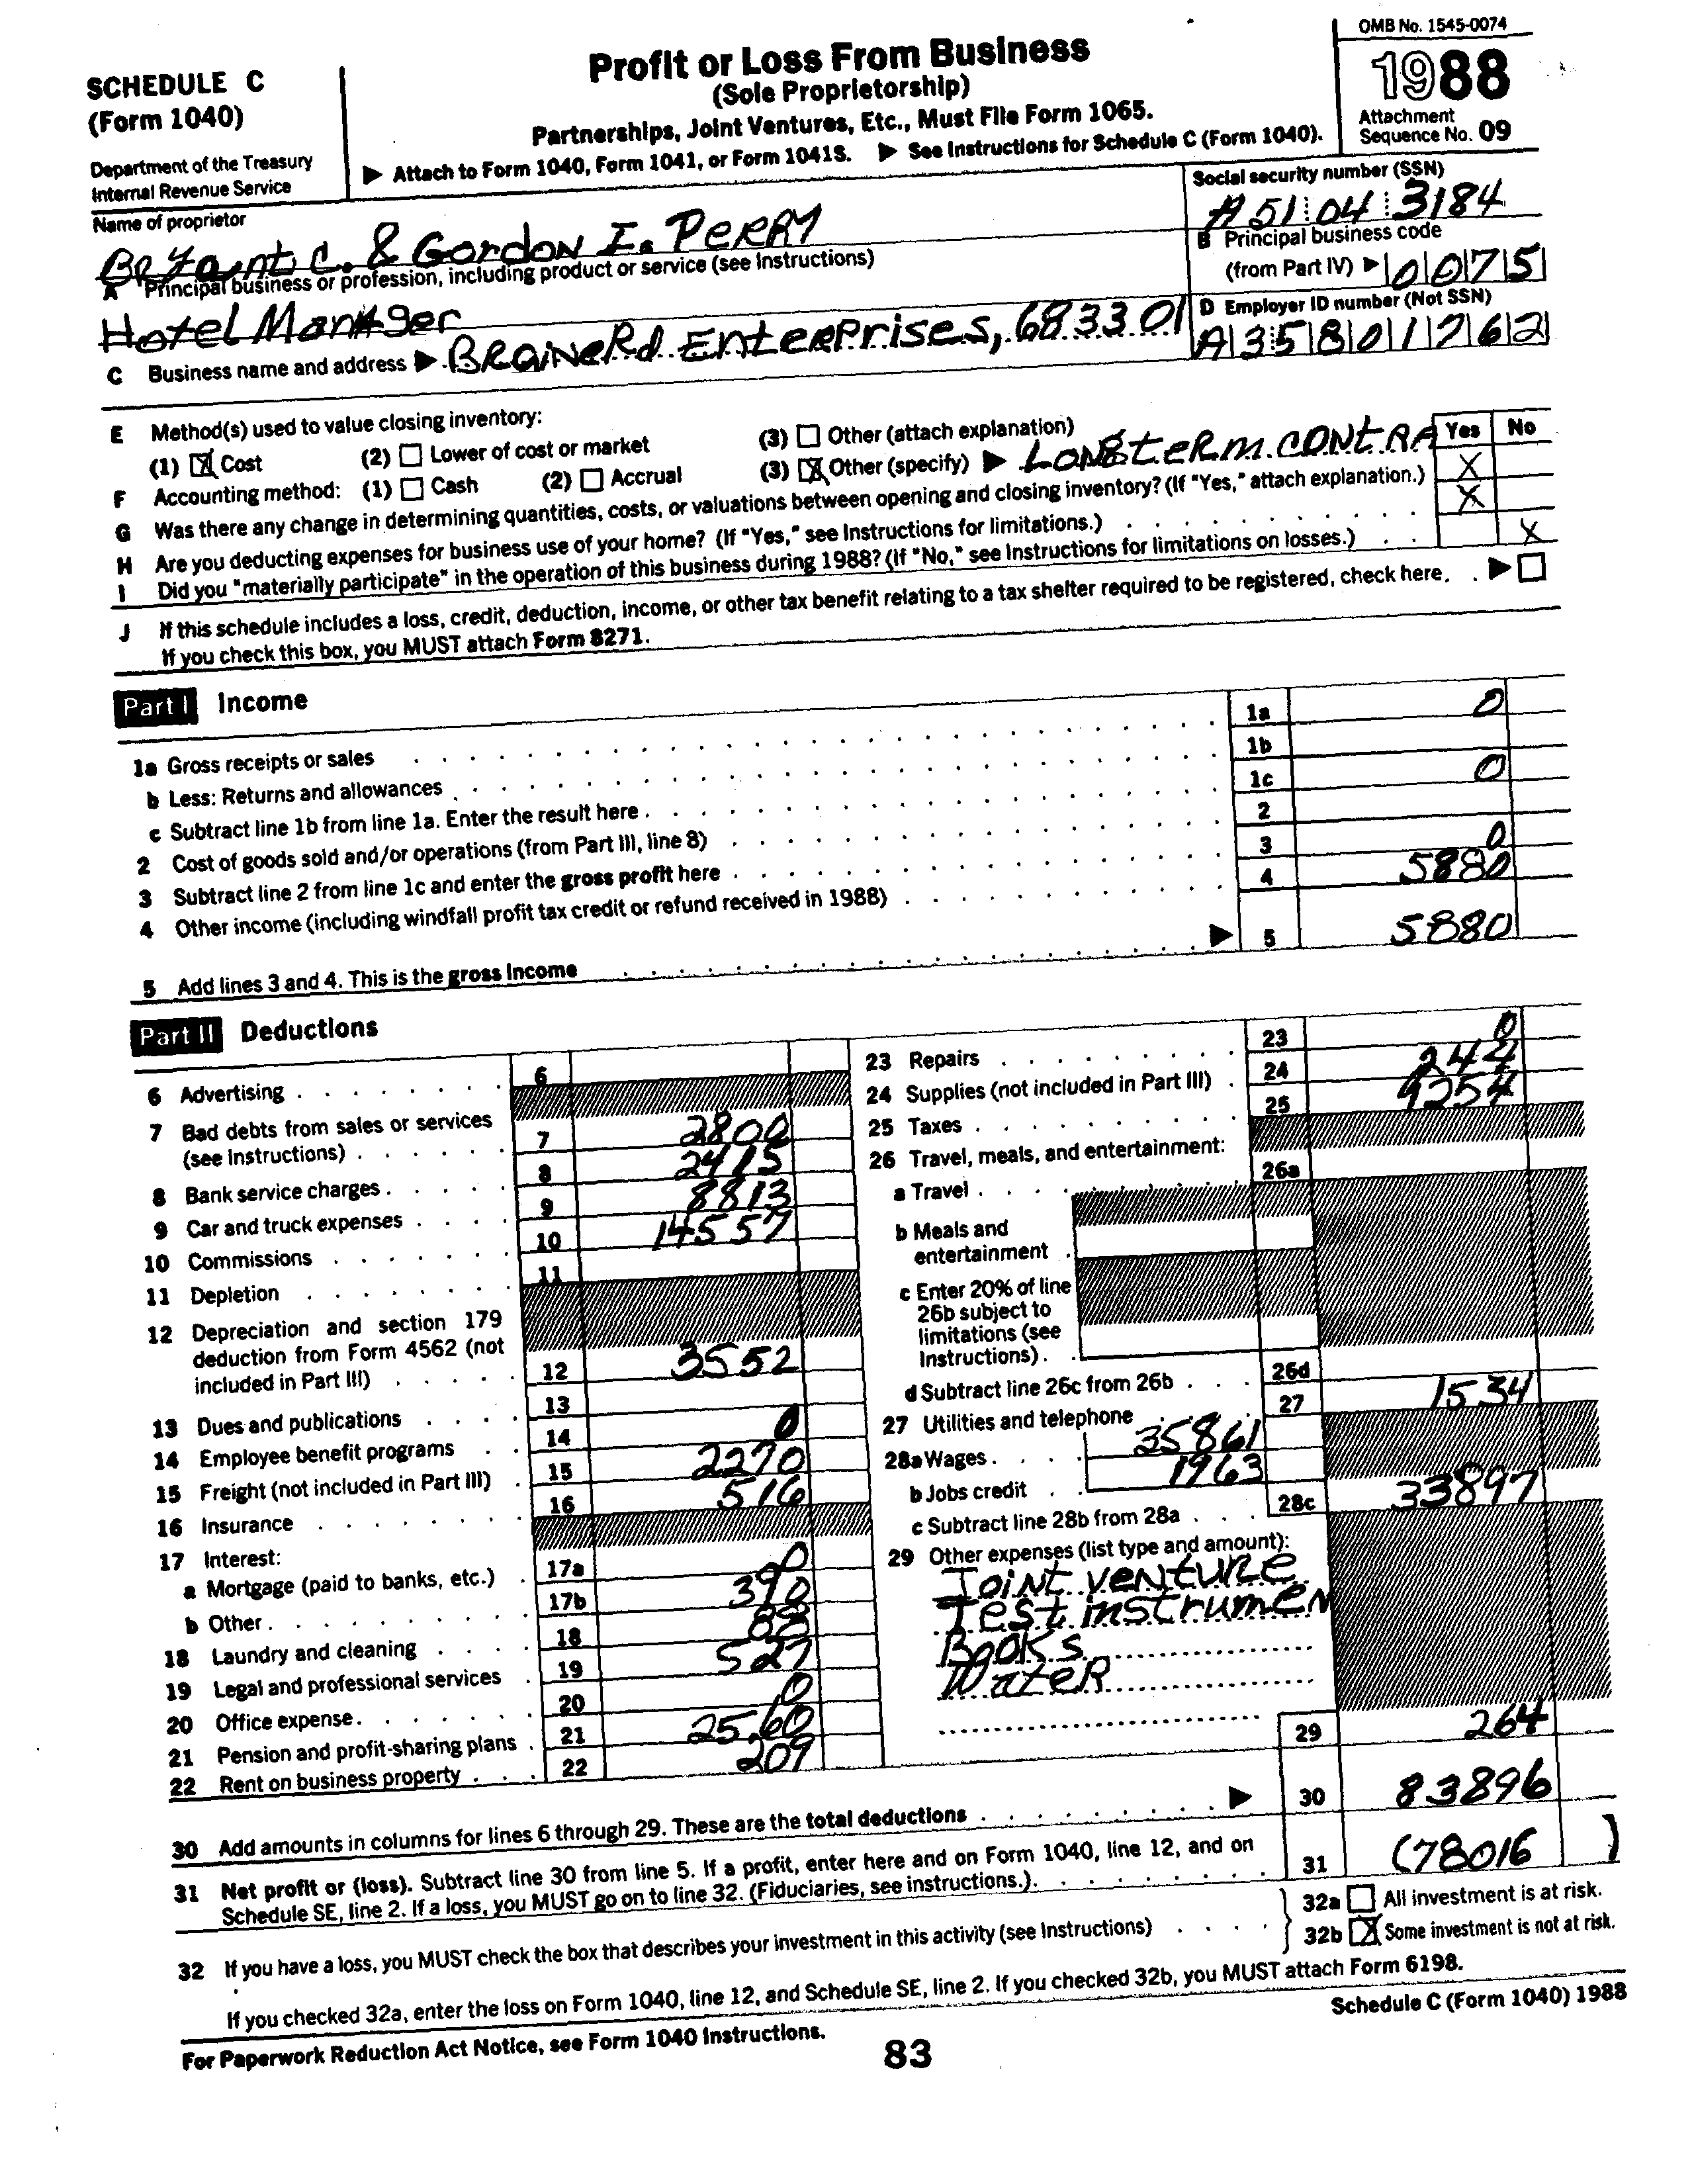 SCHEDULE C
(Form 1040)
Department of the Treasury
Internal Revenue Service
Profit or Loss From Business
(Sole Proprietorship)
Partnerships, Joint Ventures, Etc., Must File Form 1065.
▶ Attach to Form 1040, Form 1041, or Form 1041S. ▶ See Instructions for Schedule C (Form 1040).
OMB No. 1545-0074
1988
Attachment
Sequence No. 09
Name of proprietor
Bryant C. & Gordon I. Perry
Social security number (SSN)
A 51 04 3184
A Principal business or profession, including product or service (see Instructions)
Hotel Manager
B Principal business code
(from Part IV) ▶ 0075
C Business name and address ▶ Brainerd Enterprises, 683301
D Employer ID number (Not SSN)
A35801762
E Method(s) used to value closing inventory:
(1) ☒ Cost (2) ☐ Lower of cost or market (3) ☐ Other (attach explanation)
F Accounting method: (1) ☐ Cash (2) ☐ Accrual (3) ☒ Other (specify) ▶ Longterm.contra
Yes No
G Was there any change in determining quantities, costs, or valuations between opening and closing inventory? (If "Yes," attach explanation.) X
H Are you deducting expenses for business use of your home? (If "Yes," see Instructions for limitations.) X
I Did you "materially participate" in the operation of this business during 1988? (If "No," see Instructions for limitations on losses.) X
J If this schedule includes a loss, credit, deduction, income, or other tax benefit relating to a tax shelter required to be registered, check here. ▶ ☐
If you check this box, you MUST attach Form 8271.
Part I Income
1a Gross receipts or sales 1a 0
b Less: Returns and allowances 1b
c Subtract line 1b from line 1a. Enter the result here 1c 0
2 Cost of goods sold and/or operations (from Part III, line 8) 2
3 Subtract line 2 from line 1c and enter the gross profit here 3 0
4 Other income (including windfall profit tax credit or refund received in 1988) 4 5880
5 Add lines 3 and 4. This is the gross income ▶ 5 5880
Part II Deductions
6 Advertising 6
7 Bad debts from sales or services
(see Instructions) 7 2800
8 Bank service charges 8 2415
9 Car and truck expenses 9 8813
10 Commissions 10 14557
11 Depletion 11
12 Depreciation and section 179
deduction from Form 4562 (not
included in Part III) 12 3552
13 Dues and publications 13
14 Employee benefit programs 14 0
15 Freight (not included in Part III) 15 2270
16 Insurance 16 516
17 Interest:
a Mortgage (paid to banks, etc.) 17a 0
b Other 17b 390
18 Laundry and cleaning 18 88
19 Legal and professional services 19 527
20 Office expense 20 0
21 Pension and profit-sharing plans 21 2560
22 Rent on business property 22 209
23 Repairs 23 0
24 Supplies (not included in Part III) 24 244
25 Taxes 25 9254
26 Travel, meals, and entertainment:
a Travel 26a
b Meals and
entertainment
c Enter 20% of line
26b subject to
limitations (see
Instructions)
d Subtract line 26c from 26b 26d
27 Utilities and telephone 27 1534
28a Wages 35861
b Jobs credit 1963
c Subtract line 28b from 28a 28c 33897
29 Other expenses (list type and amount):
Joint venture
Test instrumen
Books
Water
29 264
30 Add amounts in columns for lines 6 through 29. These are the total deductions ▶ 30 83896
31 Net profit or (loss). Subtract line 30 from line 5. If a profit, enter here and on Form 1040, line 12, and on
Schedule SE, line 2. If a loss, you MUST go on to line 32. (Fiduciaries, see instructions.) 31 (78016 )
32 If you have a loss, you MUST check the box that describes your investment in this activity (see Instructions)
32a ☐ All investment is at risk.
32b ☒ Some investment is not at risk.
If you checked 32a, enter the loss on Form 1040, line 12, and Schedule SE, line 2. If you checked 32b, you MUST attach Form 6198.
For Paperwork Reduction Act Notice, see Form 1040 Instructions.
Schedule C (Form 1040) 1988
83